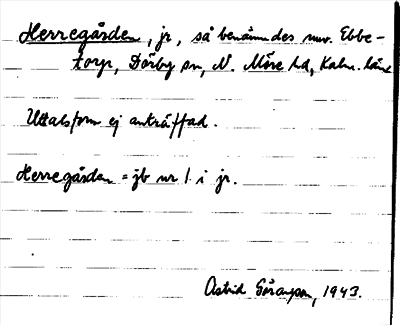 Herregården, jr, så benämndes nuv. Ebbe-
torp, Dörby sn, N. Möre hd, Kalm. län
Uttalsform ej anträffad.
Herregården = jb nr 1 i jr.
Astrid Göransson, 1943.